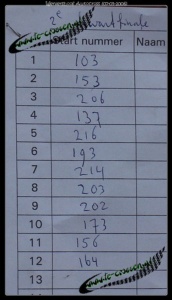 2e kwartfinale
Start nummer Naam
1 103
2 153
3 206
4 137
5 216
6 193
7 214
8 203
9 202
10 173
11 156
12 164
13